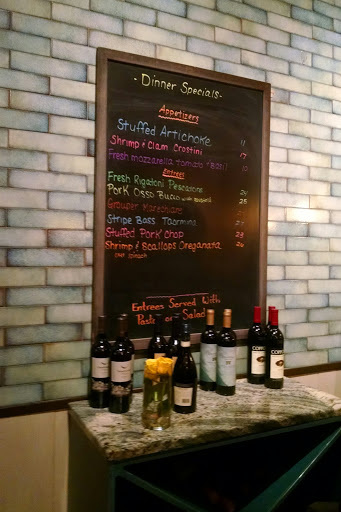 - Dinner Specials -
Appetizers
Stuffed Artichoke 11
Shrimp & Clam Crostini 17
Fresh mozzarella Tomato & Basil 10
Entrees
Fresh Rigatoni Pescatore
Pork Osso Bucco 25
Grouper Marechiaro
Stripe Bass Taormina
Stuffed Pork Chop
Shrimp & Scallops Oreganata
over spinach
Entrees Served With
Pasta or Salad